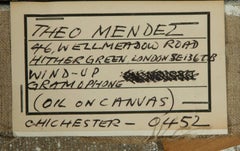 THEO MENDEZ
46, WELLMEADOW ROAD
HITHER GREEN, LONDON SE13 6TB
WIND-UP
GRAMOPHONE
(OIL ON CANVAS)
CHICHESTER - 0452